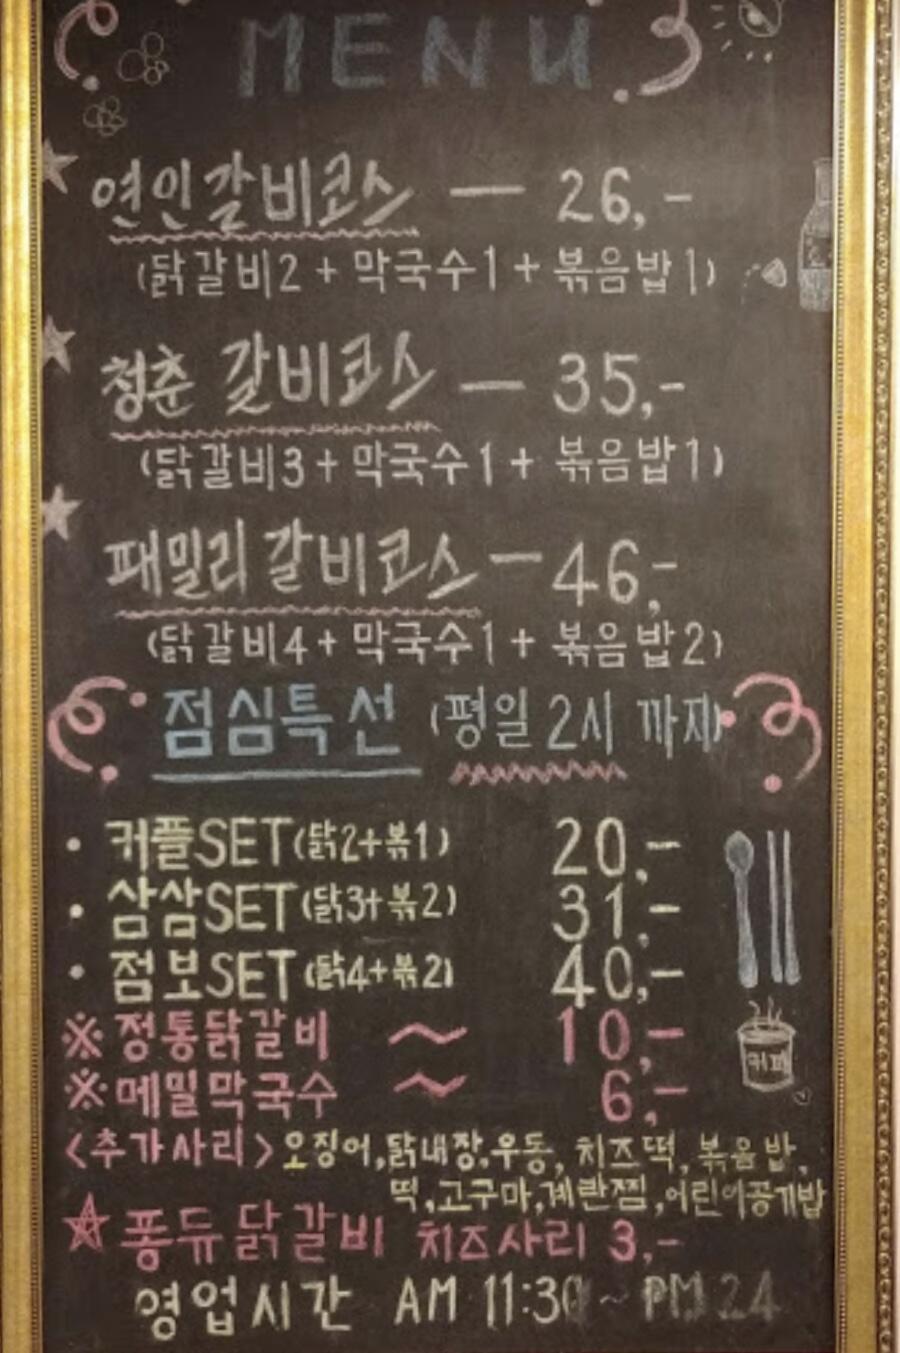 MENU
연인갈비코스 — 26,-
(닭갈비2 + 막국수1 + 볶음밥1)
청춘 갈비코스 — 35,-
(닭갈비3 + 막국수1 + 볶음밥1)
패밀리갈비코스 — 46,-
(닭갈비4 + 막국수1 + 볶음밥2)
점심특선 (평일 2시 까지)
• 커플SET(닭2+볶1) 20,-
• 삼삼SET(닭3+볶2) 31,-
• 점보SET(닭4+볶2) 40,-
※ 정통닭갈비 ~ 10,-
※ 메밀막국수 ~ 6,-
커피
<추가사리> 오징어,닭내장,우동, 치즈떡, 볶음밥,
떡,고구마,계란찜,어린이공기밥
☆ 퐁듀닭갈비 치즈사리 3,-
영업시간 AM 11:30 ~ PM 24